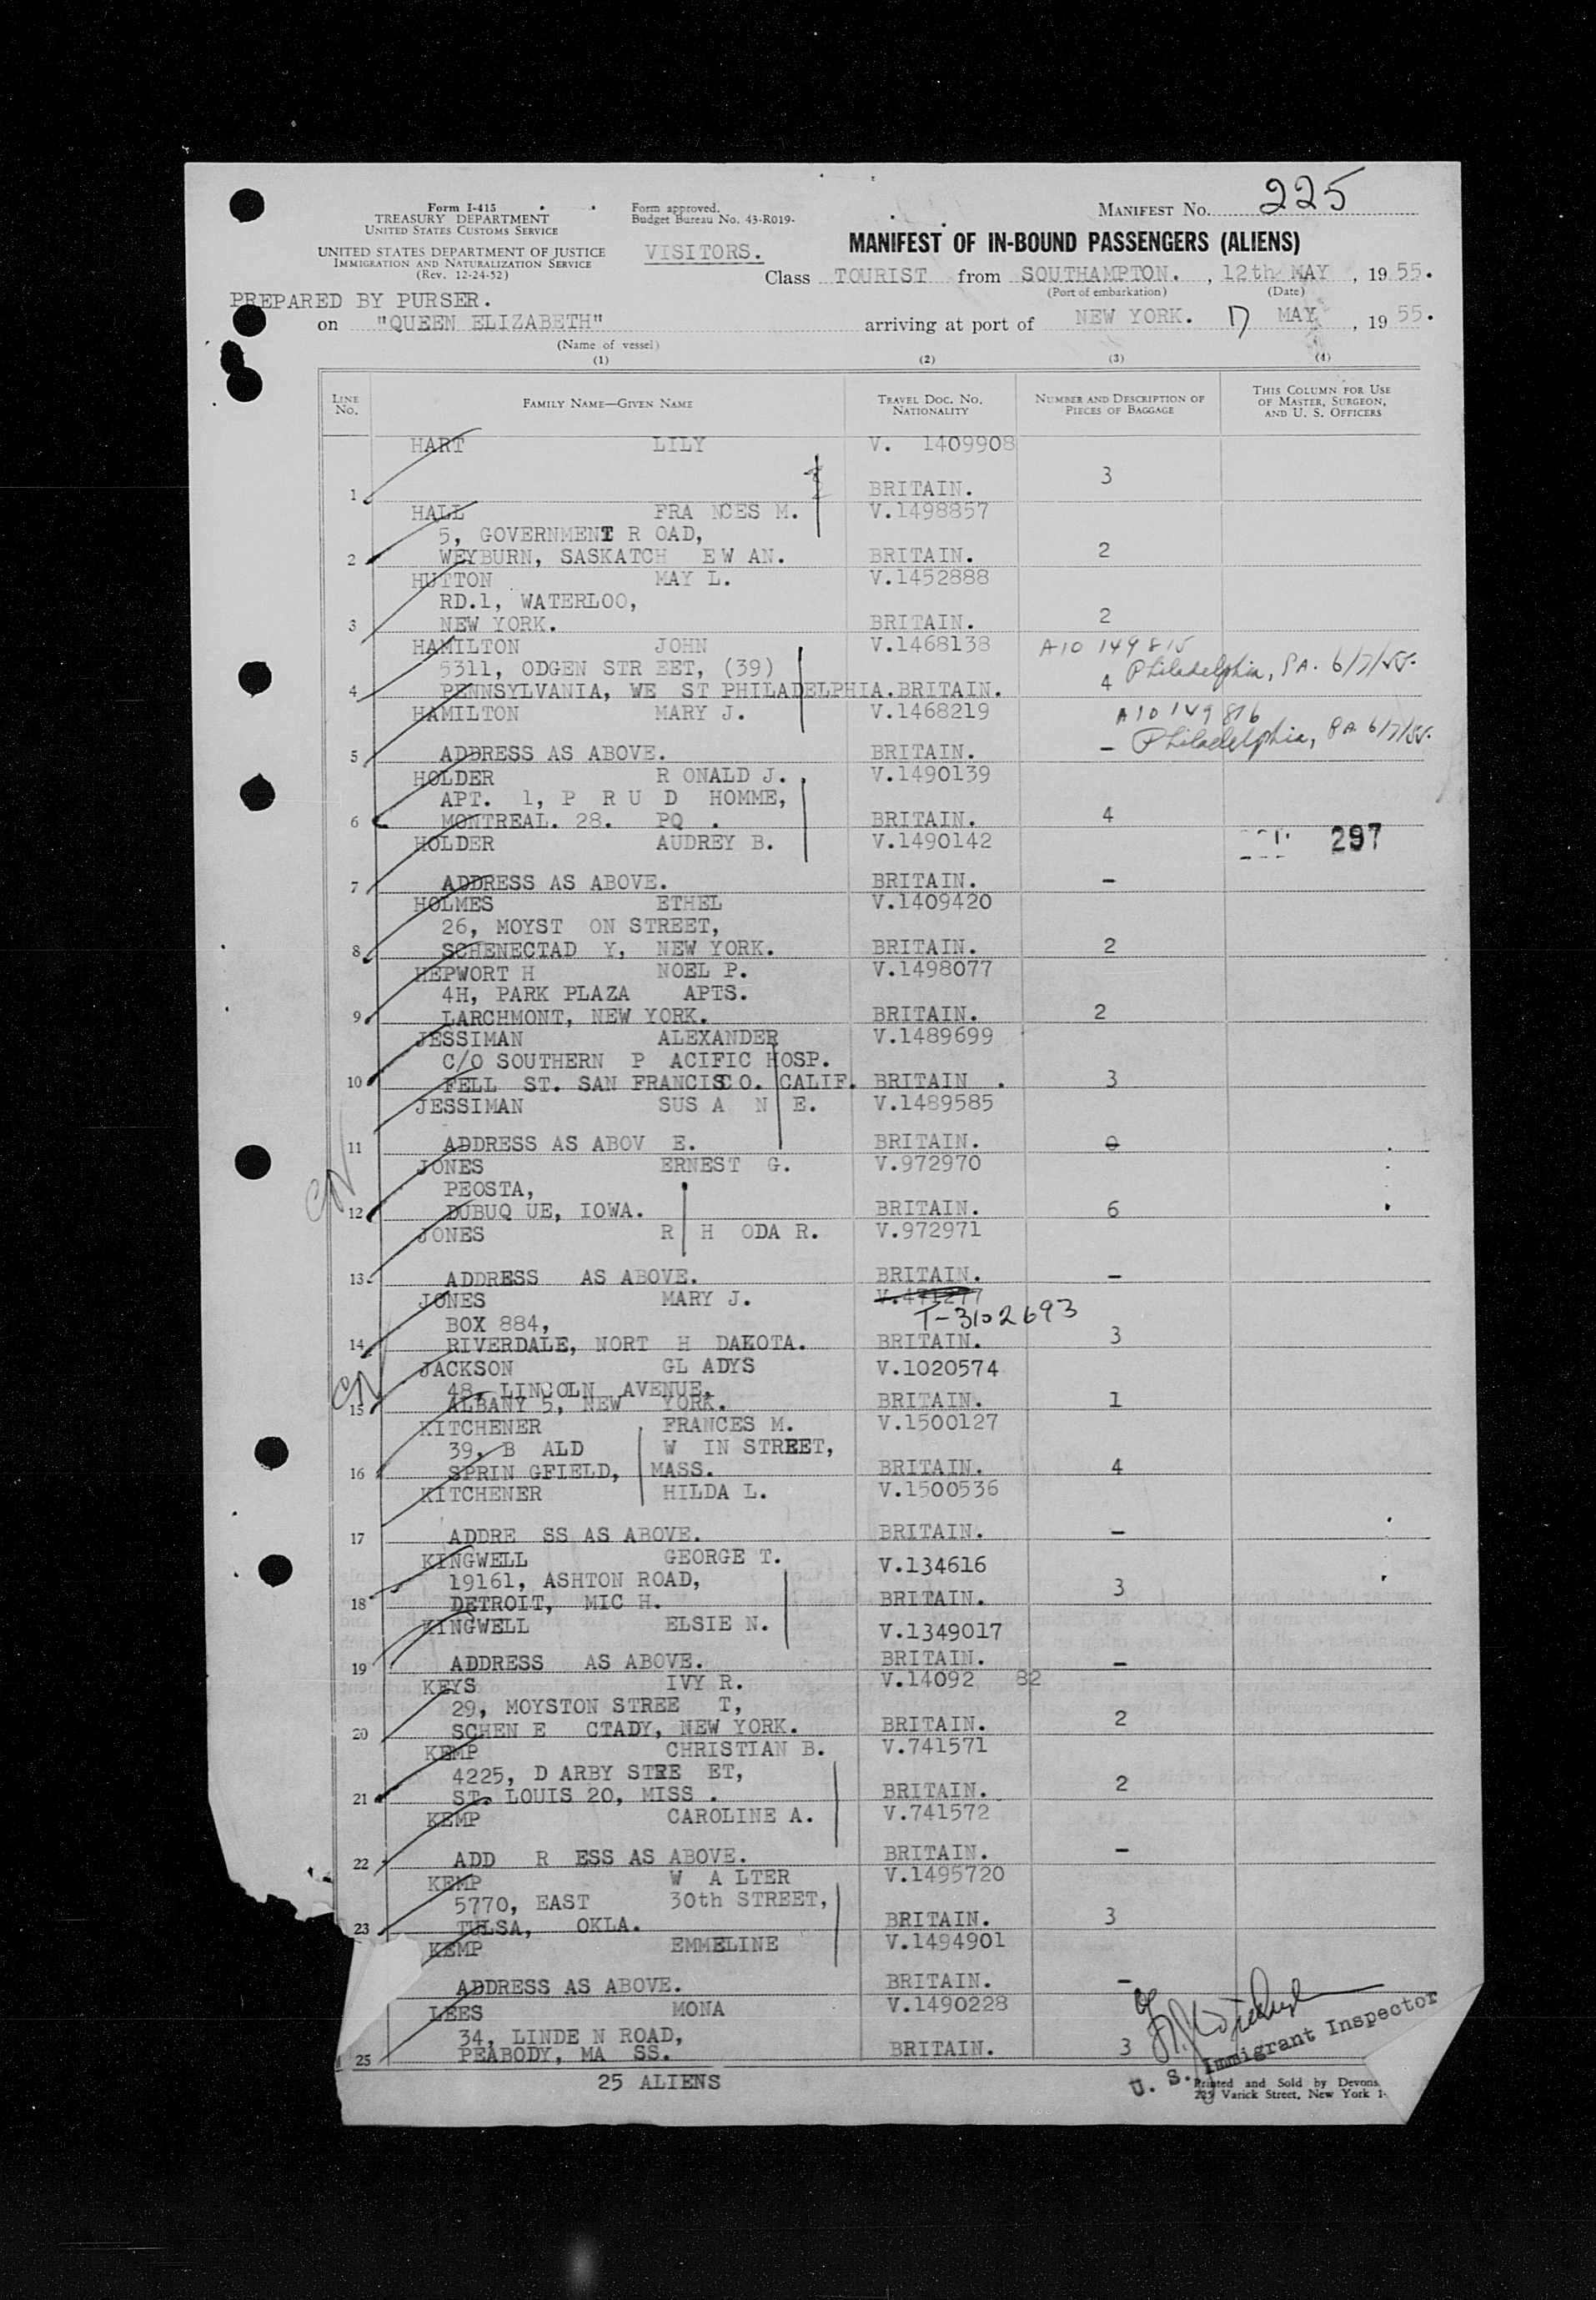 225
Form I-415
TREASURY DEPARTMENT
UNITED STATES CUSTOMS SERVICE
UNITED STATES DEPARTMENT OF JUSTICE
IMMIGRATION AND NATURALIZATION SERVICE
(Rev. 12-24-52)
Form approved.
Budget Bureau No. 43-R019-
VISITORS.
MANIFEST NO.
MANIFEST OF IN-BOUND PASSENGERS (ALIENS)
Class TOURIST from SOUTHAMPTON. , 12th MAY , 19 55.
(Port of embarkation) (Date)
PREPARED BY PURSER.
on "QUEEN ELIZABETH" arriving at port of NEW YORK. 17 MAY , 19 55.
(Name of vessel)
(1) (2) (3) (4)
LINE NO. FAMILY NAME—GIVEN NAME TRAVEL DOC. NO. NATIONALITY NUMBER AND DESCRIPTION OF PIECES OF BAGGAGE THIS COLUMN FOR USE OF MASTER, SURGEON, AND U. S. OFFICERS
HART LILY V. 1409908
1 BRITAIN. 3
HALL FRA NCES M. V.1498857
5, GOVERNMENT R OAD,
2 WEYBURN, SASKATCH EW AN. BRITAIN. 2
HUTTON MAY L. V.1452888
RD.1, WATERLOO,
3 NEW YORK. BRITAIN. 2
HAMILTON JOHN V.1468138 A10 149 815
5311, ODGEN STR EET, (39) Philadelphia, PA. 6/7/55.
4 PENNSYLVANIA, WE ST PHILADELPHIA. BRITAIN. 4
HAMILTON MARY J. V.1468219 A10 149 816
5 ADDRESS AS ABOVE. BRITAIN. — Philadelphia, PA 6/7/55.
HOLDER R ONALD J. V.1490139
APT. 1, P R U D HOMME,
6 MONTREAL. 28. PQ . BRITAIN. 4
HOLDER AUDREY B. V.1490142 297
7 ADDRESS AS ABOVE. BRITAIN. —
HOLMES ETHEL V.1409420
26, MOYST ON STREET,
8 SCHENECTAD Y, NEW YORK. BRITAIN. 2
HEPWORT H NOEL P. V.1498077
4H, PARK PLAZA APTS.
9 LARCHMONT, NEW YORK. BRITAIN. 2
JESSIMAN ALEXANDER V.1489699
C/O SOUTHERN P ACIFIC HOSP.
10 FELL ST. SAN FRANCISCO. CALIF. BRITAIN . 3
JESSIMAN SUS A N E. V.1489585
11 ADDRESS AS ABOV E. BRITAIN. 0
JONES ERNEST G. V.972970
PEOSTA,
12 DUBUQ UE, IOWA. BRITAIN. 6
JONES R H ODA R. V.972971
13 ADDRESS AS ABOVE. BRITAIN. —
JONES MARY J. V.471277
BOX 884, T-3102693
14 RIVERDALE, NORT H DAKOTA. BRITAIN. 3
JACKSON GL ADYS V.1020574
48, LINCOLN AVENUE,
15 ALBANY 5, NEW YORK. BRITAIN. 1
KITCHENER FRANCES M. V.1500127
39, B ALD W IN STREET,
16 SPRIN GFIELD, MASS. BRITAIN. 4
KITCHENER HILDA L. V.1500536
17 ADDRE SS AS ABOVE. BRITAIN. —
KINGWELL GEORGE T. V.134616
19161, ASHTON ROAD,
18 DETROIT, MIC H. BRITAIN. 3
KINGWELL ELSIE N. V.1349017
19 ADDRESS AS ABOVE. BRITAIN. —
KEYS IVY R. V.14092 82
29, MOYSTON STREE T,
20 SCHEN E CTADY, NEW YORK. BRITAIN. 2
KEMP CHRISTIAN B. V.741571
4225, D ARBY STRE ET,
21 ST. LOUIS 20, MISS . BRITAIN. 2
KEMP CAROLINE A. V.741572
22 ADD R ESS AS ABOVE. BRITAIN. —
KEMP W A LTER V.1495720
5770, EAST 30th STREET,
23 TULSA, OKLA. BRITAIN. 3
KEMP EMMELINE V.1494901
ADDRESS AS ABOVE. BRITAIN. —
LEES MONA V.1490228
34, LINDE N ROAD,
25 PEABODY, MA SS. BRITAIN. 3
25 ALIENS
U. S. Immigrant Inspector
Printed and Sold by Devons
225 Varick Street, New York 1